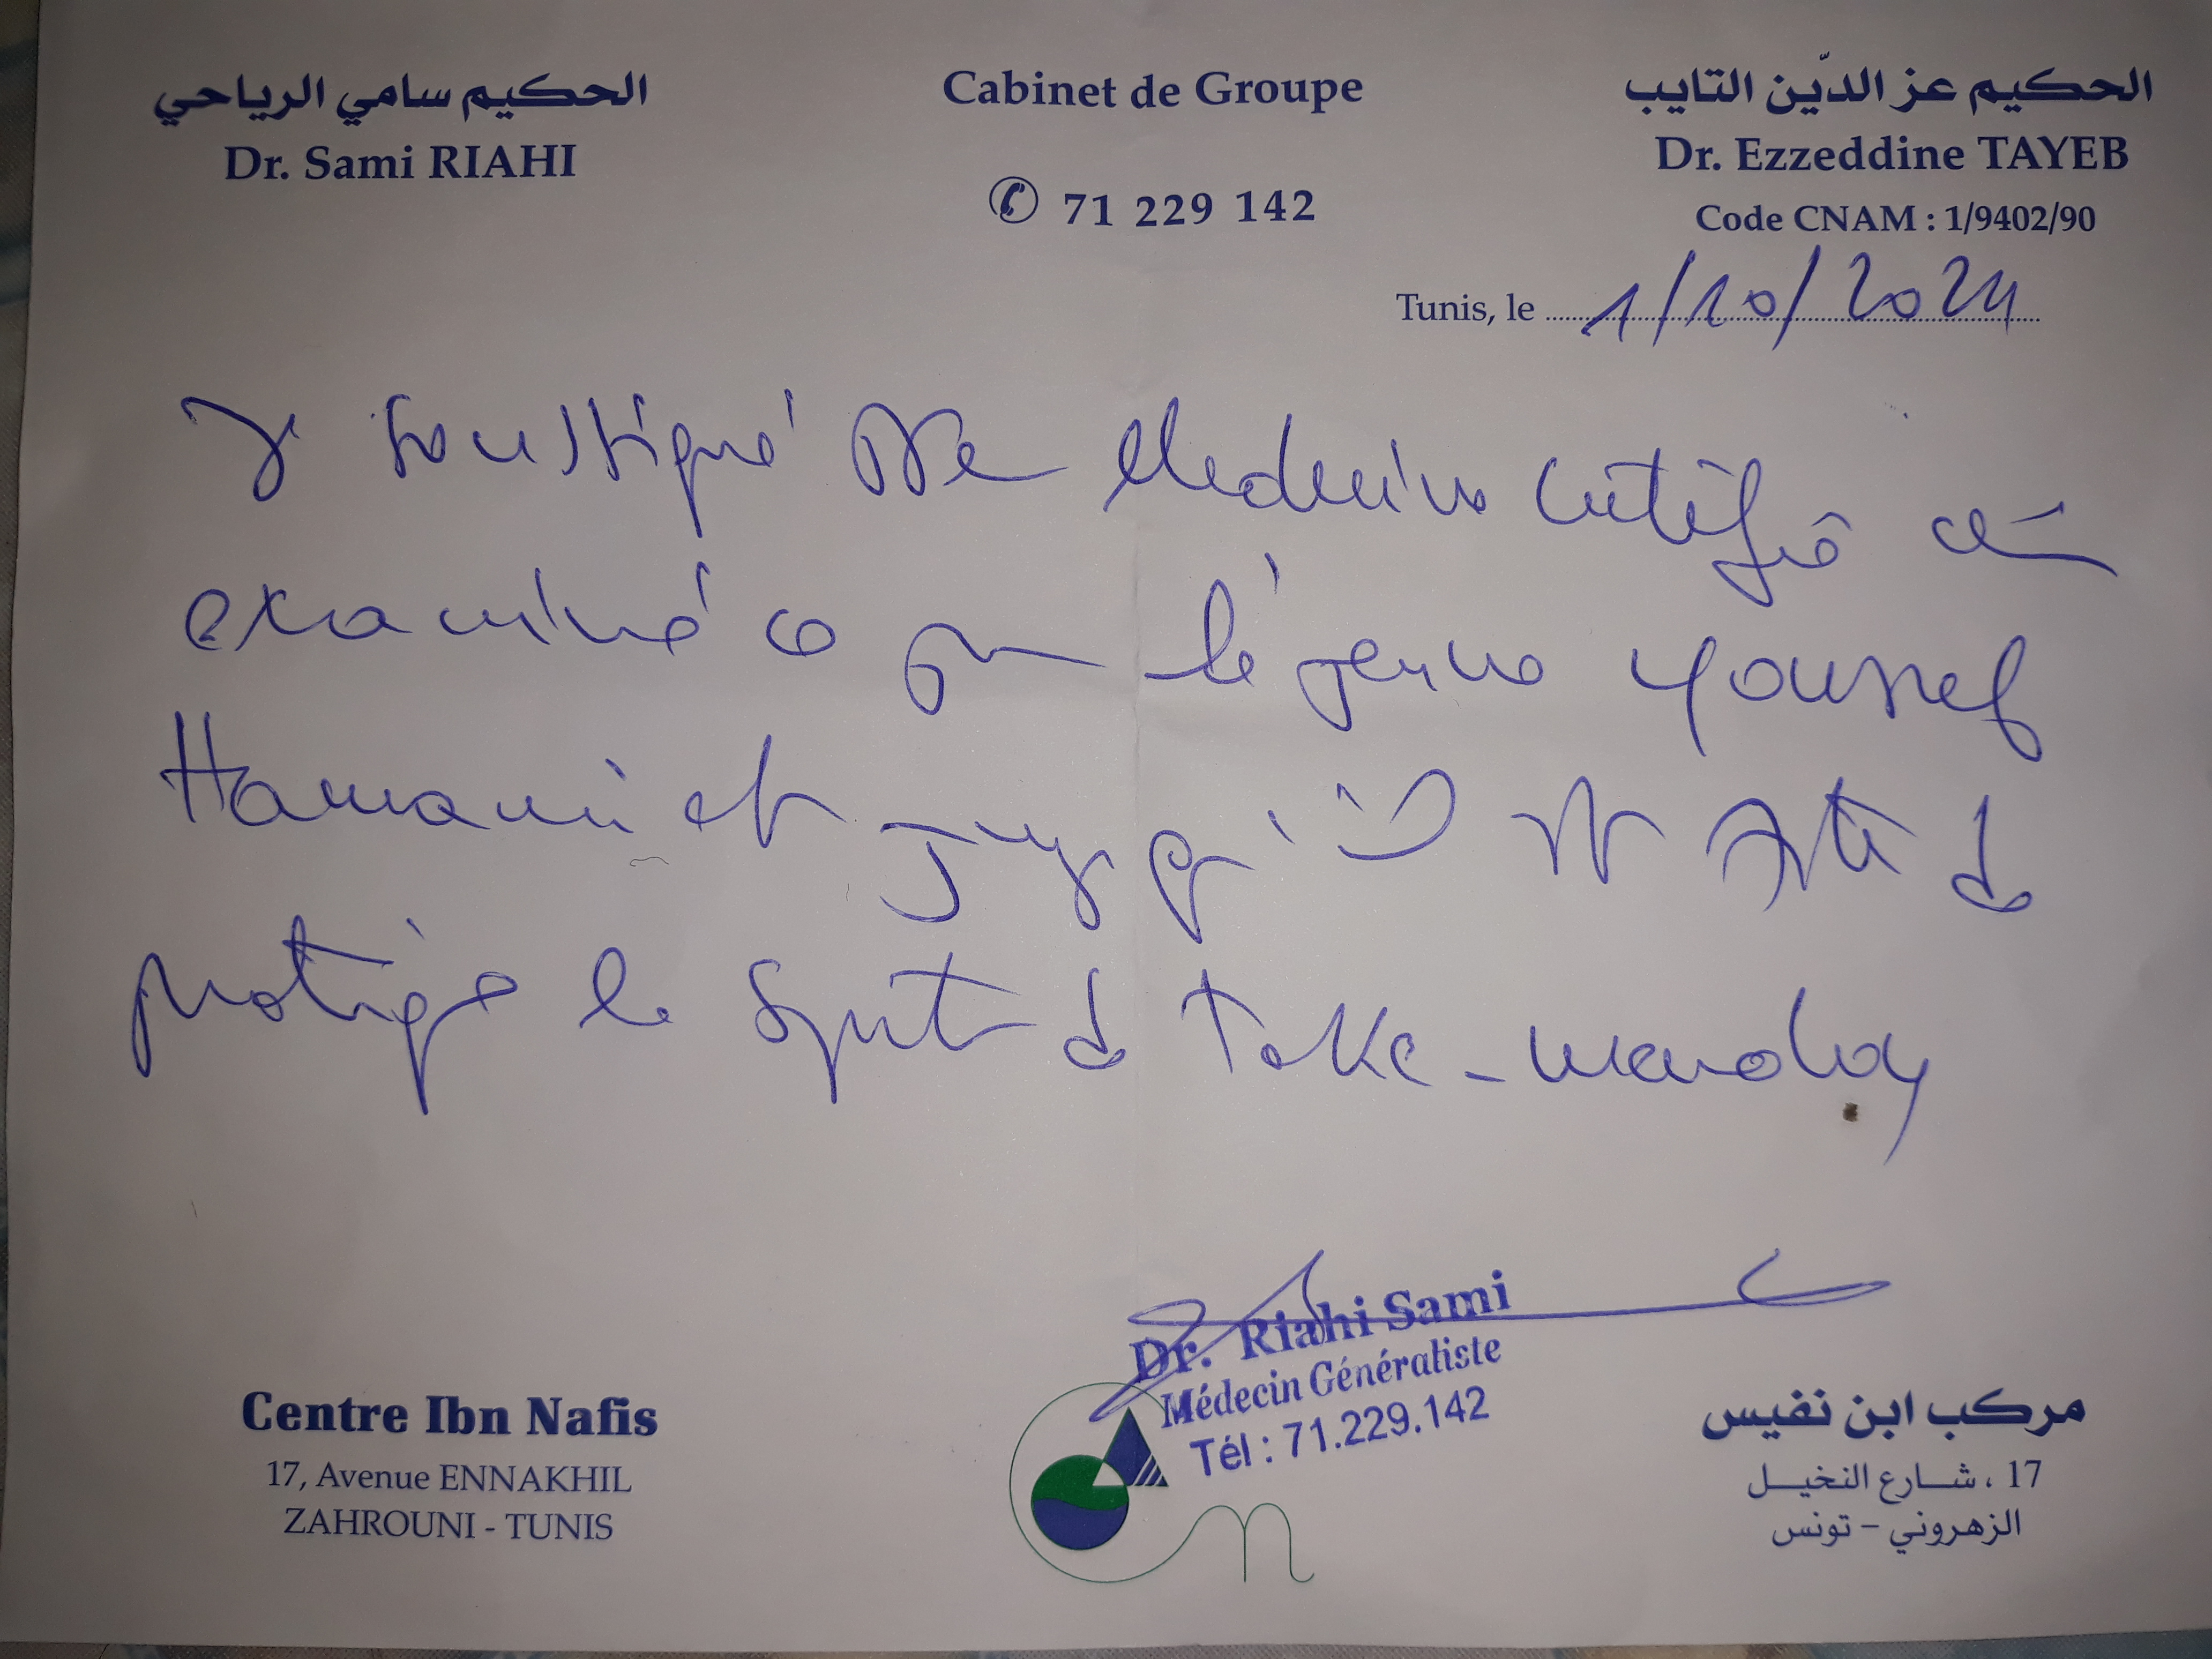 الحكيم سامي الرياحي
Dr. Sami RIAHI
Cabinet de Groupe
71 229 142
الحكيم عز الدّين التايب
Dr. Ezzeddine TAYEB
Code CNAM : 1/9402/90
Tunis, le 1/10/2024
Je soussigné Médecin certifie
examiné ce jour le jeune Youssef
Hamami et juge qu'il est apte de
pratique le sport de Take-wendoy
Dr. Riahi Sami
Médecin Généraliste
Tél : 71.229.142
Centre Ibn Nafis
17, Avenue ENNAKHIL
ZAHROUNI - TUNIS
مركب ابن نفيس
17 ، شارع النخيل
الزهروني - تونس